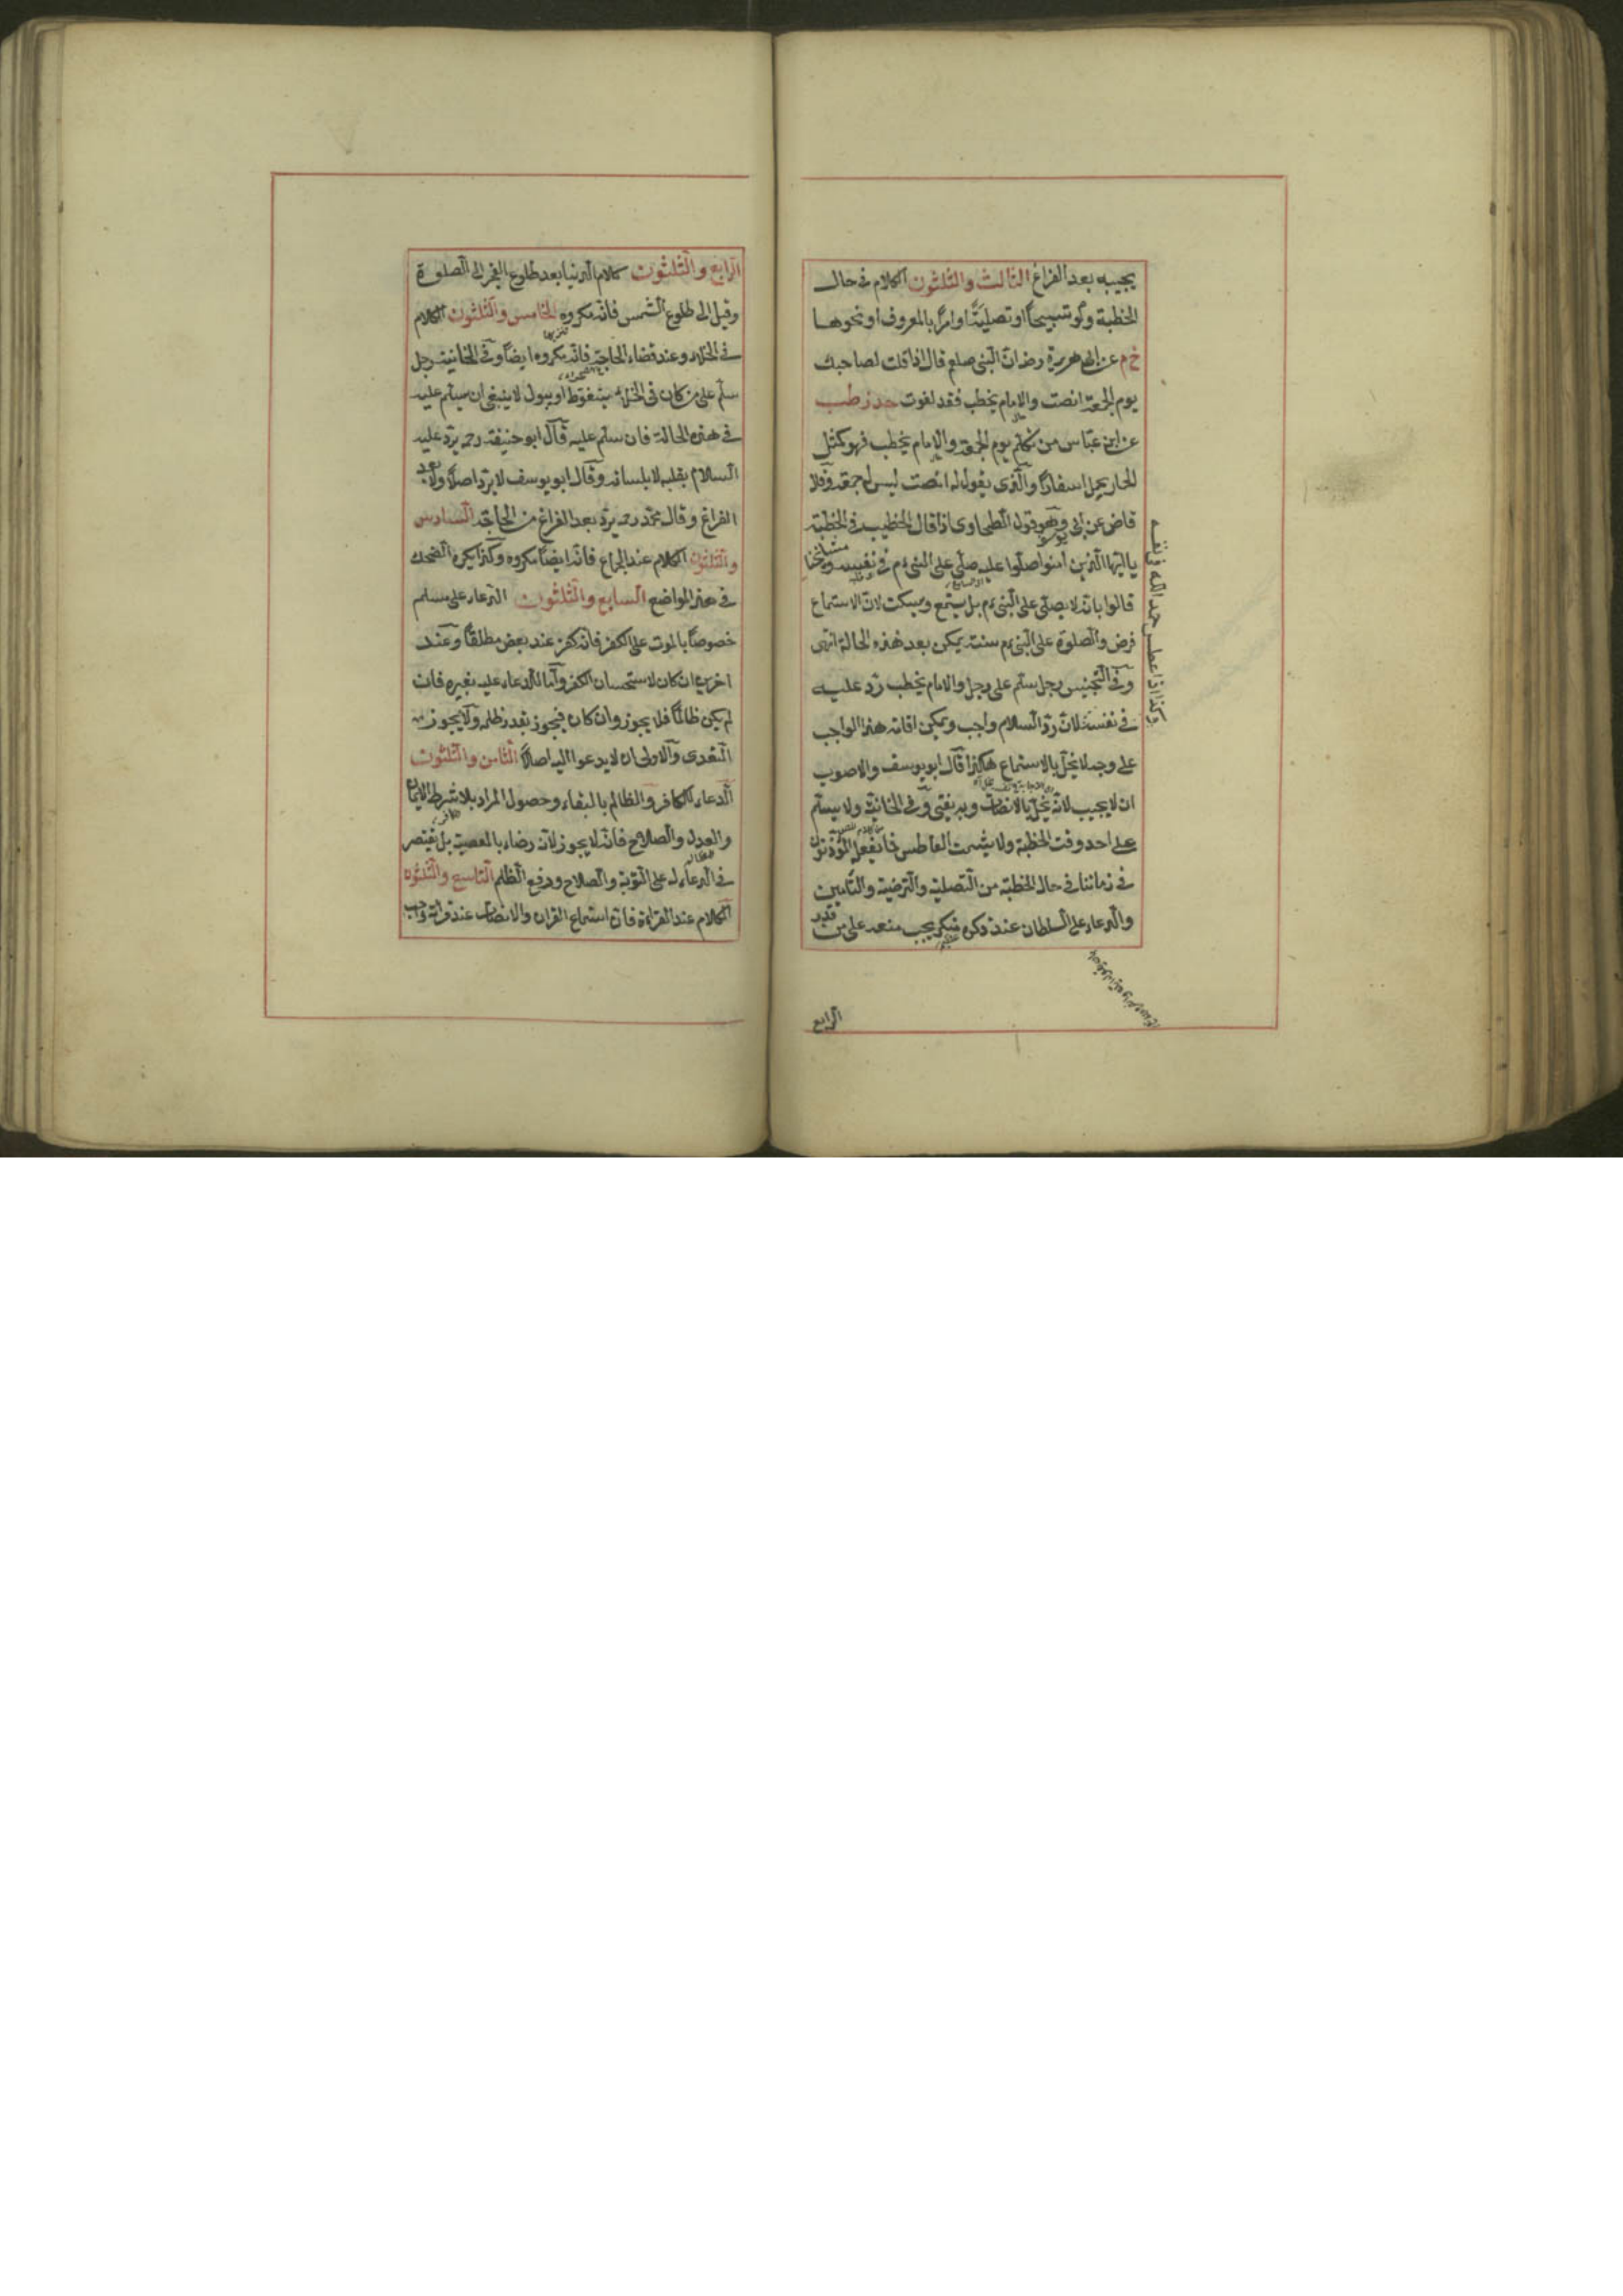 يجيبه بعد الفراغ الثالث والثلثون الكلام فى حال
الخطبة ولو تسبيحاً او تصليةً او امراً بالمعروف او نحوها
خ م عن ابى هريرة رضه ان النبى صلعم قال اذا قلت لصاحبك
يوم الجمعة انصت والامام يخطب فقد لغوت حد ز طب
عن ابن عباس من تكلم يوم الجمعة والامام يخطب فهو كمثل
الحمار يحمل اسفاراً والذى يقول له انصت ليس له جمعة وقال
قاضى عن ابى يوسف وهو قول الطحاوى اذا قال الخطيب فى الخطبة
يا ايها الذين امنوا صلوا عليه صلى على النبى ءم فى نفسه ومشايخنا
قالوا بانه لا يصلى على النبى ءم بل يستمع ويسكت لان الاستماع
فرض والصلوة على النبى ءم سنة يمكن بعد هذه الحالة انتهى
وفى التجنيس رجل سلم على رجل والامام يخطب رد عليه
فى نفسه لان رد السلام واجب ويمكن اقامة هذا الواجب
على وجه لا يخل بالاستماع هكذا قال ابو يوسف والاصوب
ان لا يجيب لانه يخل بالانصات وبه يفتى وفى الخانية ولا يسلم
على احد وقت الخطبة ولا يشمت العاطس فما يفعل المؤذنون
فى زماننا فى حال الخطبة من التصلية والترضية والتأمين
والدعاء على السلطان عند ذكره منكر يجب منعه على من قدر
وكذا اذا عطس حمد الله فى نفسه
الرابع
الرابع والثلثون كلام الدنيا بعد طلوع الفجر الى الصلوة
وقيل الى طلوع الشمس فانه مكروه الخامس والثلثون الكلام
فى الخلاء وعند قضاء الحاجة فانه مكروه ايضاً وفى الخانية رجل
سلم على من كان فى الخلاء يتغوط او يبول لا ينبغى ان يسلم عليه
فى هذه الحالة فان سلم عليه قال ابو حنيفة رحه يرد عليه
السلام بقلبه لا بلسانه وقال ابو يوسف لا يرد اصلاً ولا بعد
الفراغ وقال محمد رحه يرد بعد الفراغ من الحاجة السادس
والثلثون الكلام عند الجماع فانه ايضاً مكروه وكذا يكره الضحك
فى هذه المواضع السابع والثلثون الدعاء على مسلم
خصوصاً بالموت على الكفر فانه كفر عند بعض مطلقاً وعند
اخرين ان كان لاستحسان الكفر واما الدعاء عليه بغيره فان
لم يكن ظالماً فلا يجوز وان كان فيجوز بقدر ظلمه ولا يجوز
التعدى والاولى ان لا يدعوا اليه اصلاً الثامن والثلثون
الدعاء للكافر والظالم بالبقاء وحصول المراد بلا شرط الايمان
والعدل والصلاح فانه لا يجوز لانه رضاء بالمعصية بل يقتصر
فى الدعاء له على التوبة والصلاح ودفع الظلم التاسع والثلثون
الكلام عند القراءة فان استماع القران والانصات عند قراءته واجب